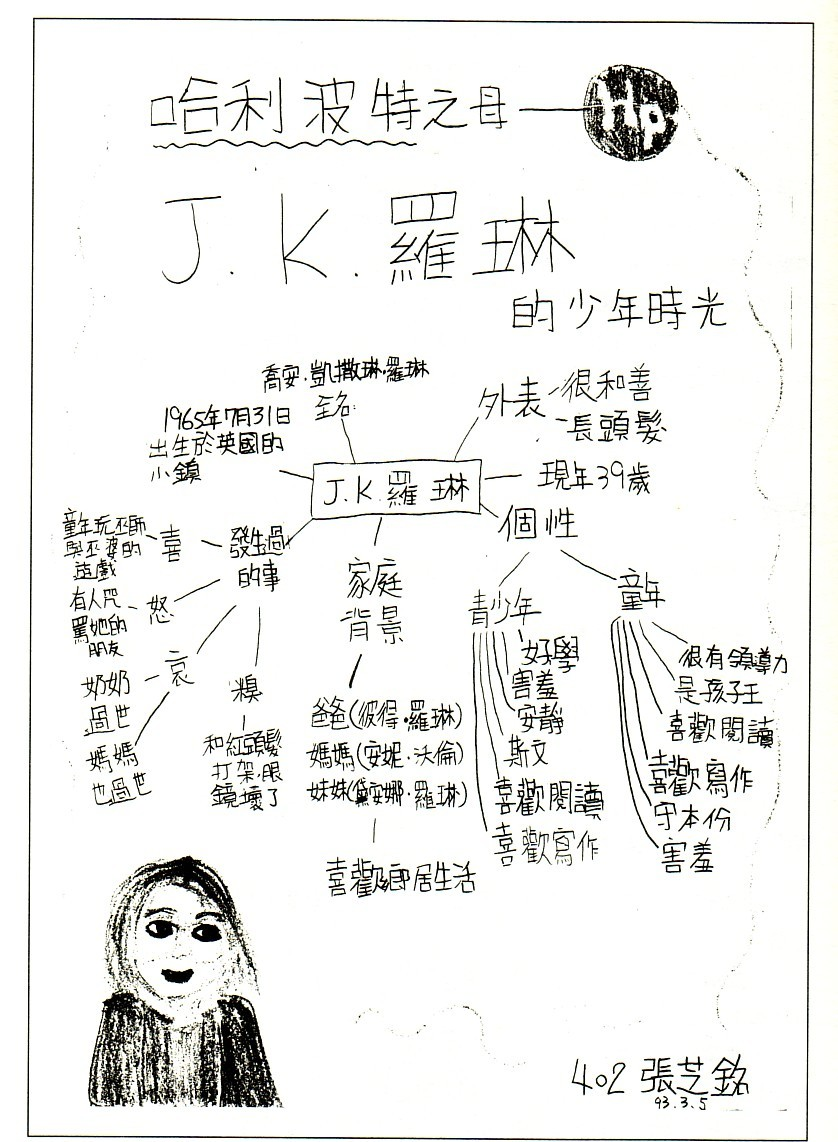 哈利波特之母 Hp
J.K.羅琳
的少年時光
喬安·凱撒琳·羅琳
全名:
1965年7月31日
出生於英國的
小鎮
外表
很和善
長頭髮
J.K.羅琳
現年39歲
個性
發生過
的事
喜
童年玩巫師
與巫婆的
遊戲
怒
有人咒
罵她的
朋友
哀
奶奶
過世
媽媽
也過世
糗
和紅頭髮
打架.眼
鏡壞了
家庭
背景
爸爸(彼得·羅琳)
媽媽(安妮·沃倫)
妹妹(黛安娜·羅琳)
喜歡鄉居生活
青少年
好學
害羞
安靜
斯文
喜歡閱讀
喜歡寫作
童年
很有領導力
是孩子王
喜歡閱讀
喜歡寫作
守本份
害羞
402 張芝銘
93.3.5